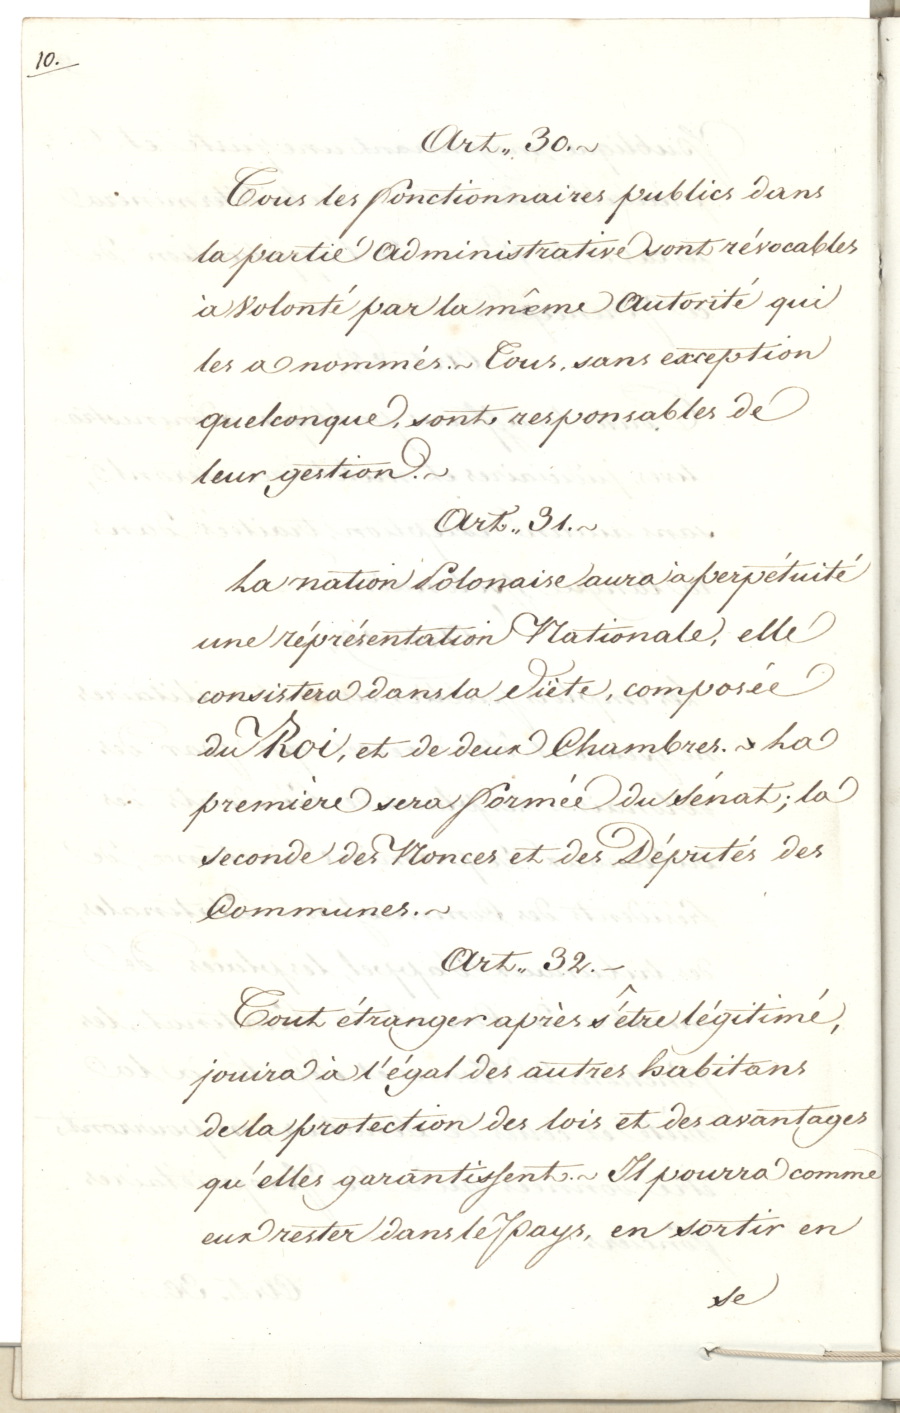 10.
Art„ 30.~
Tous les fonctionnaires publics dans
la partié administrative sont révocables
à volonté par la même Autorité qui
les a nommés.~ Tous, sans exception
quelconque, sont responsables de
leur gestion.~
Art„ 31.~
La nation Polonaise aura à perpétuité
une réprésentation Nationale, elle
consistera dans la Diète, composée
du Roi, et de deux Chambres. ~ La
première sera formée du Sénat; la
seconde des Nonces et des Députés des
Communes.~
Art„ 32.~
Tout étranger après s'être légitimé,
jouira à l'égal des autres habitans
de la protection des lois et des avantages
qu'elles garantissent.~ Il pourra comme
eux rester dans le pays, en sortir en
se